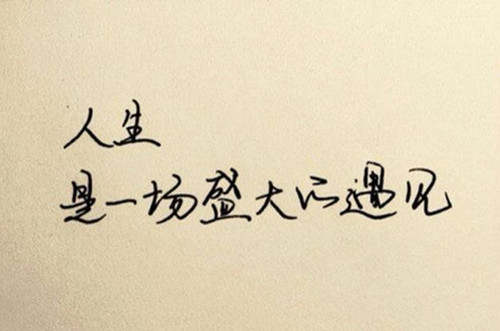 人生
是一场盛大的遇见